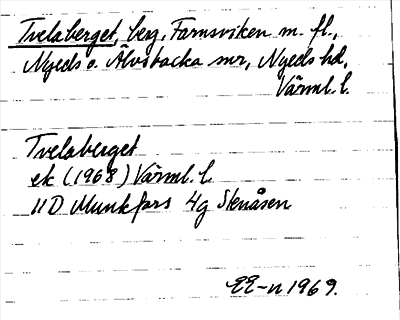 Tvelaberget, berg, Farnsviken m. fl.,
Nyeds o. Älvsbacka snr, Nyeds hd,
Värml. l.
Tvelaberget
ek (1968) Värml. l.
11D Munkfors 4g Stenåsen
EE-n 1969.